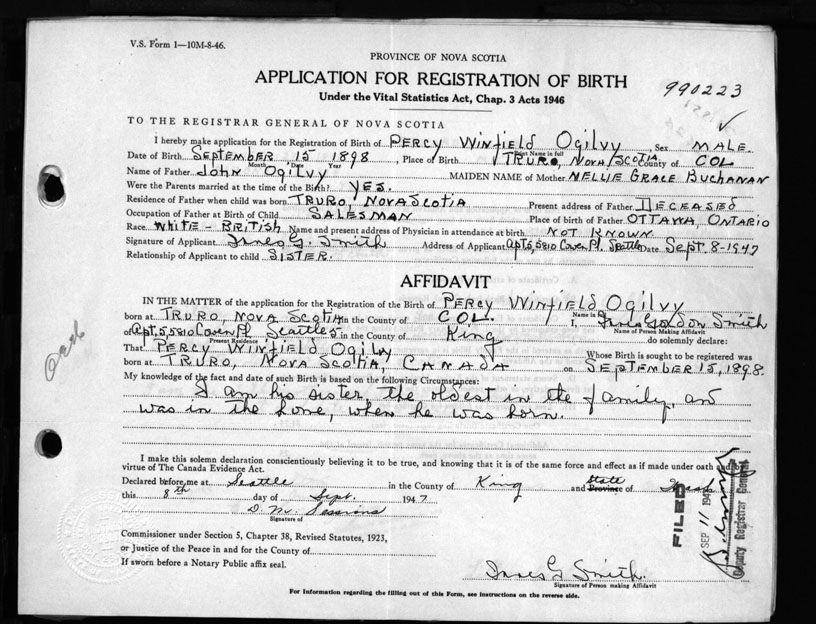 V.S. Form 1—10M-8-46.
PROVINCE OF NOVA SCOTIA
APPLICATION FOR REGISTRATION OF BIRTH
990223
Under the Vital Statistics Act, Chap. 3 Acts 1946
TO THE REGISTRAR GENERAL OF NOVA SCOTIA
I hereby make application for the Registration of Birth of PERCY WINFIELD OGILVY Sex MALE.
Print Name in full
Date of Birth SEPTEMBER 15 1898, Place of Birth TRURO, NOVA SCOTIA County of COL
Month Date Year
Name of Father JOHN OGILVY MAIDEN NAME of Mother NELLIE GRACE BUCHANAN
Were the Parents married at the time of the Birth? YES.
Residence of Father when child was born TRURO, NOVA SCOTIA Present address of Father DECEASED
Occupation of Father at Birth of Child SALESMAN Place of birth of Father OTTAWA, ONTARIO
Race WHITE - BRITISH Name and present address of Physician in attendance at birth NOT KNOWN
Signature of Applicant Innes G. Smith Address of Applicant Apt 5, 5810 Cowen Pl. Seattle Date Sept. 8-1947
Relationship of Applicant to child SISTER.
AFFIDAVIT
IN THE MATTER of the application for the Registration of the Birth of PERCY WINFIELD OGILVY
Name in full
born at TRURO, NOVA SCOTIA in the County of COL. I, Innes Gordon Smith
Name of Person Making Affidavit
of Apt. 5, 5810 Cowen Pl Seattle in the County of King do solemnly declare:
Present Residence
That PERCY WINFIELD OGILVY Whose Birth is sought to be registered was
born at TRURO, NOVA SCOTIA, CANADA on SEPTEMBER 15, 1898.
My knowledge of the fact and date of such Birth is based on the following Circumstances:
I am his sister, the oldest in the family, and
was in the home, when he was born.
I make this solemn declaration conscientiously believing it to be true, and knowing that it is of the same force and effect as if made under oath and by
virtue of The Canada Evidence Act.
Declared before me at Seattle in the County of King and State Province of Wash
this 8th day of Sept. 1947
D. M. Sessions
Signature of
Commissioner under Section 5, Chapter 38, Revised Statutes, 1923,
or Justice of the Peace in and for the County of
If sworn before a Notary Public affix seal.
Innes G Smith.
Signature of Person making Affidavit
For Information regarding the filling out of this Form, see instructions on the reverse side.
FILED
SEP 11 194
Deputy Registrar General